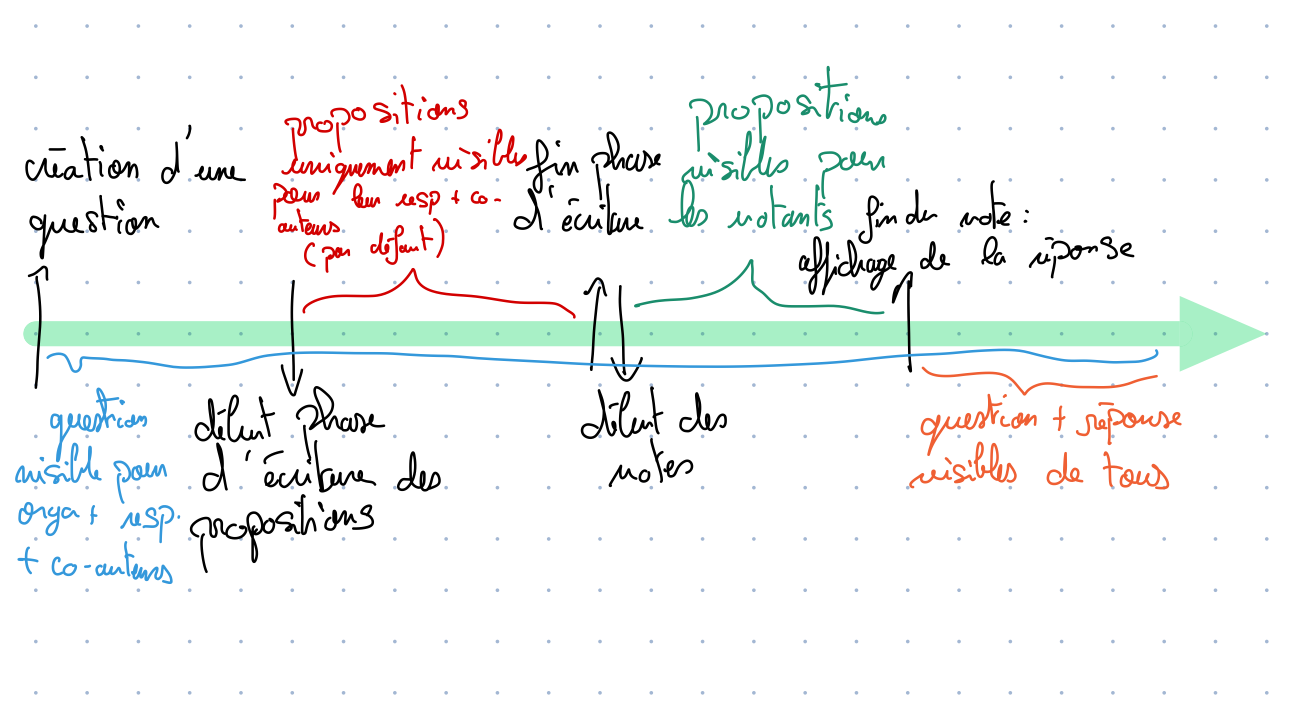 création d'une
question
propositions
uniquement visibles
pour leur resp + co-
auteurs
(par défaut)
fin phase
d'écriture
propositions
visibles pour
les votants
fin du vote :
affichage de la réponse
question
visible pour
orga + resp.
+ co-auteurs
début phase
d'écriture des
propositions
début des
votes
question + réponse
visibles de tous